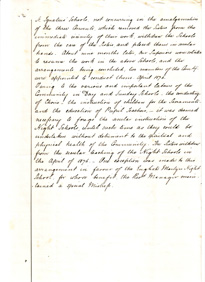 St Ignatius Schools, not concurring in the amalgamation
of the three Convents which removed the Sisters from the
immediate vicinity of their work, withdrew the Schools
from the care of the Sisters and placed them in secular
hands. About nine months later, the Sisters were invited
to resume the work in the above Schools and the
arrangements being concluded, ten members of the Comty
were appointed to conduct them April 1876.
Owing to the serious and important labour of the
Community in Day and Sunday Schools: the instructing
of Classes: the instruction of children for the Sacraments
and the education of Pupil Teachers, it was deemed
necessary to forego the secular instruction of the
Night Schools, until such time as they could be
undertaken without detriment to the spiritual and
physical health of the Community. The Sisters withdrew
from the secular teaching of the Night Schools in
the April of 1876. One exception was made to this
arrangement in favour of the English Martyrs Night
School, for whose benefit the Revd Manager enter-
tained a special